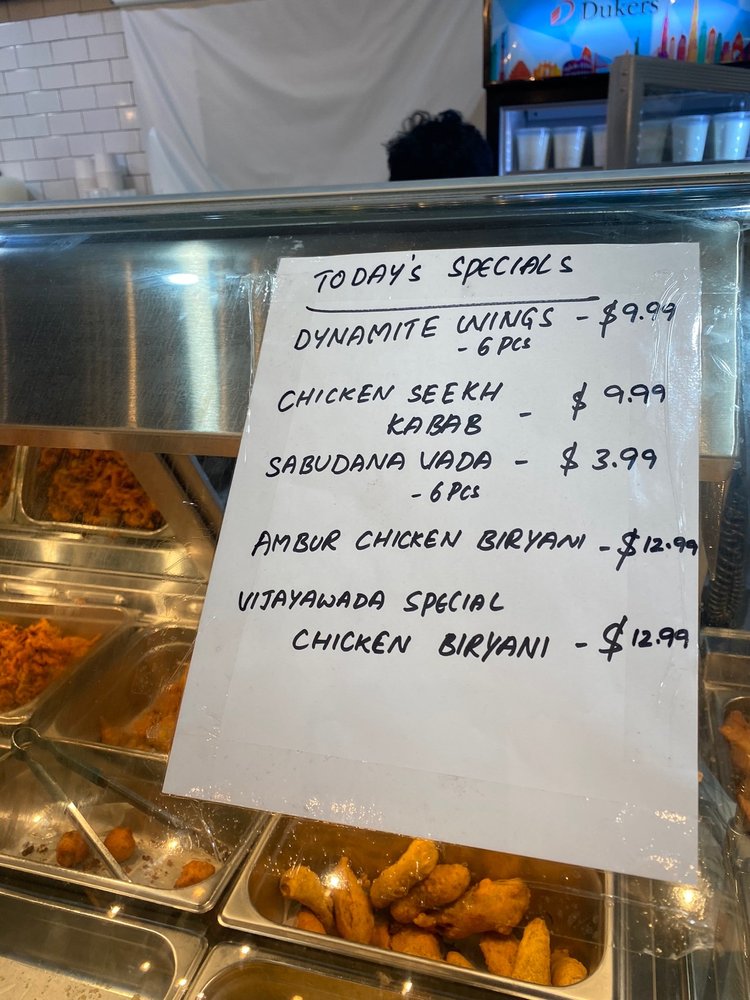 Dukers
TODAY'S SPECIALS
DYNAMITE WINGS - $9.99
- 6 PCS
CHICKEN SEEKH
KABAB - $ 9.99
SABUDANA VADA - $ 3.99
- 6 PCS
AMBUR CHICKEN BIRYANI - $12.99
VIJAYAWADA SPECIAL
CHICKEN BIRYANI - $12.99